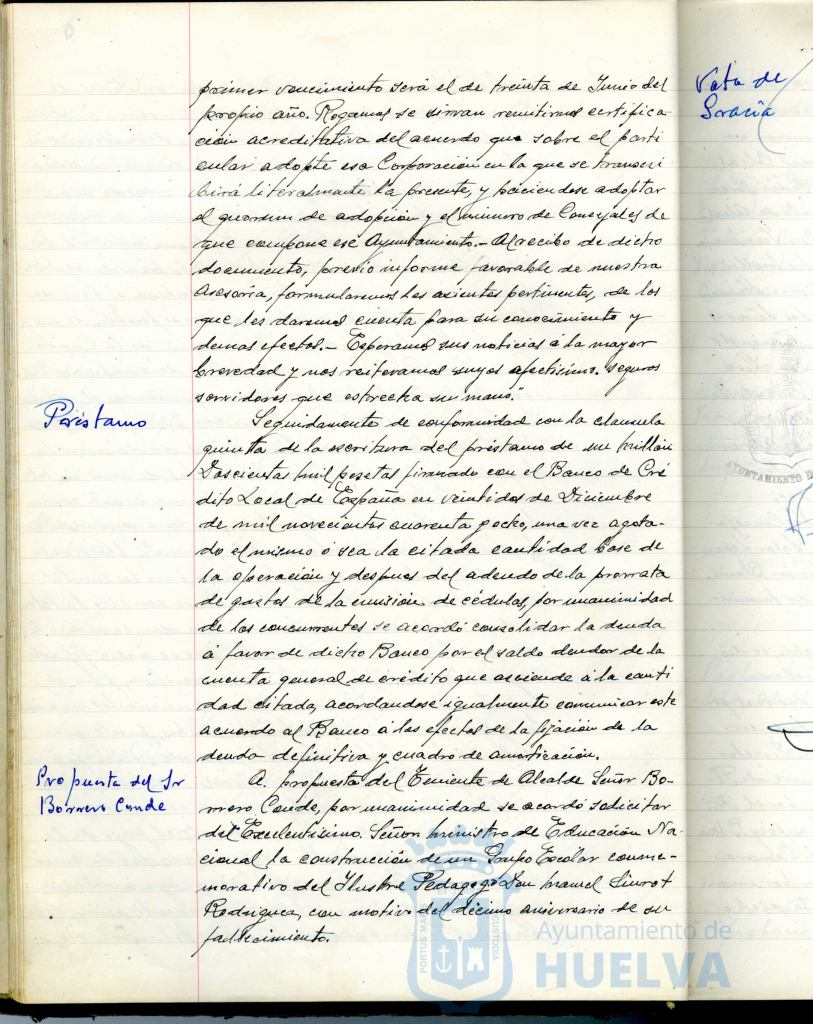 primer vencimiento será el de treinta de Junio del
propio año. Rogamos se sirvan remitirnos certifica-
ción acreditativa del acuerdo que sobre el parti
cular adopte esa Corporación en la que se transcri
birá literalmente la presente, y haciendose adoptar
el quorum de adopción y el número de Concejales de
que compone ese Ayuntamiento.- Al recibo de dicho
documento, previo informe favorable de nuestra
Asesoría, formularemos los asientos pertinentes, de los
que les daremos cuenta para su conocimiento y
demas efectos.- Esperamos sus noticias á la mayor
brevedad y nos reiteramos suyos afectisimos. seguros
servidores que estrecha su mano."
Préstamo
Seguidamente de conformidad con la clausula
quinta de la escritura del préstamo de un millón
Doscientas mil pesetas firmado con el Banco de Cré
dito Local de España en veintidos de Diciembre
de mil novecientos cuarenta y ocho, una vez agota-
do el mismo ó sea la citada cantidad base de
la operación y despues del adeudo de la prorrata
de gastos de la emisión de cédulas, por unanimidad
de los concurrentes se acordó consolidar la deuda
á favor de dicho Banco por el saldo deudor de la
cuenta general de crédito que asciende á la canti
dad citada, acordandose igualmente comunicar este
acuerdo al Banco á los efectos de la fijación de la
deuda definitiva y cuadro de amortización.
Propuesta del Sr
Borrero Conde
A propuesta del Teniente de Alcalde Señor Bo-
rrero Conde, por unanimidad se acordó solicitar
del Excelentísimo. Señor Ministro de Educación Na-
cional la construcción de un Grupo Escolar conme-
morativo del Ilustre Pedagogo Don Manuel Siurot
Rodriguez, con motivo del décimo aniversario de su
fallecimiento.
de
AYUNTAMIENTO D
PORTUS MA
CUSTODIA
Ayuntamiento de
HUELVA